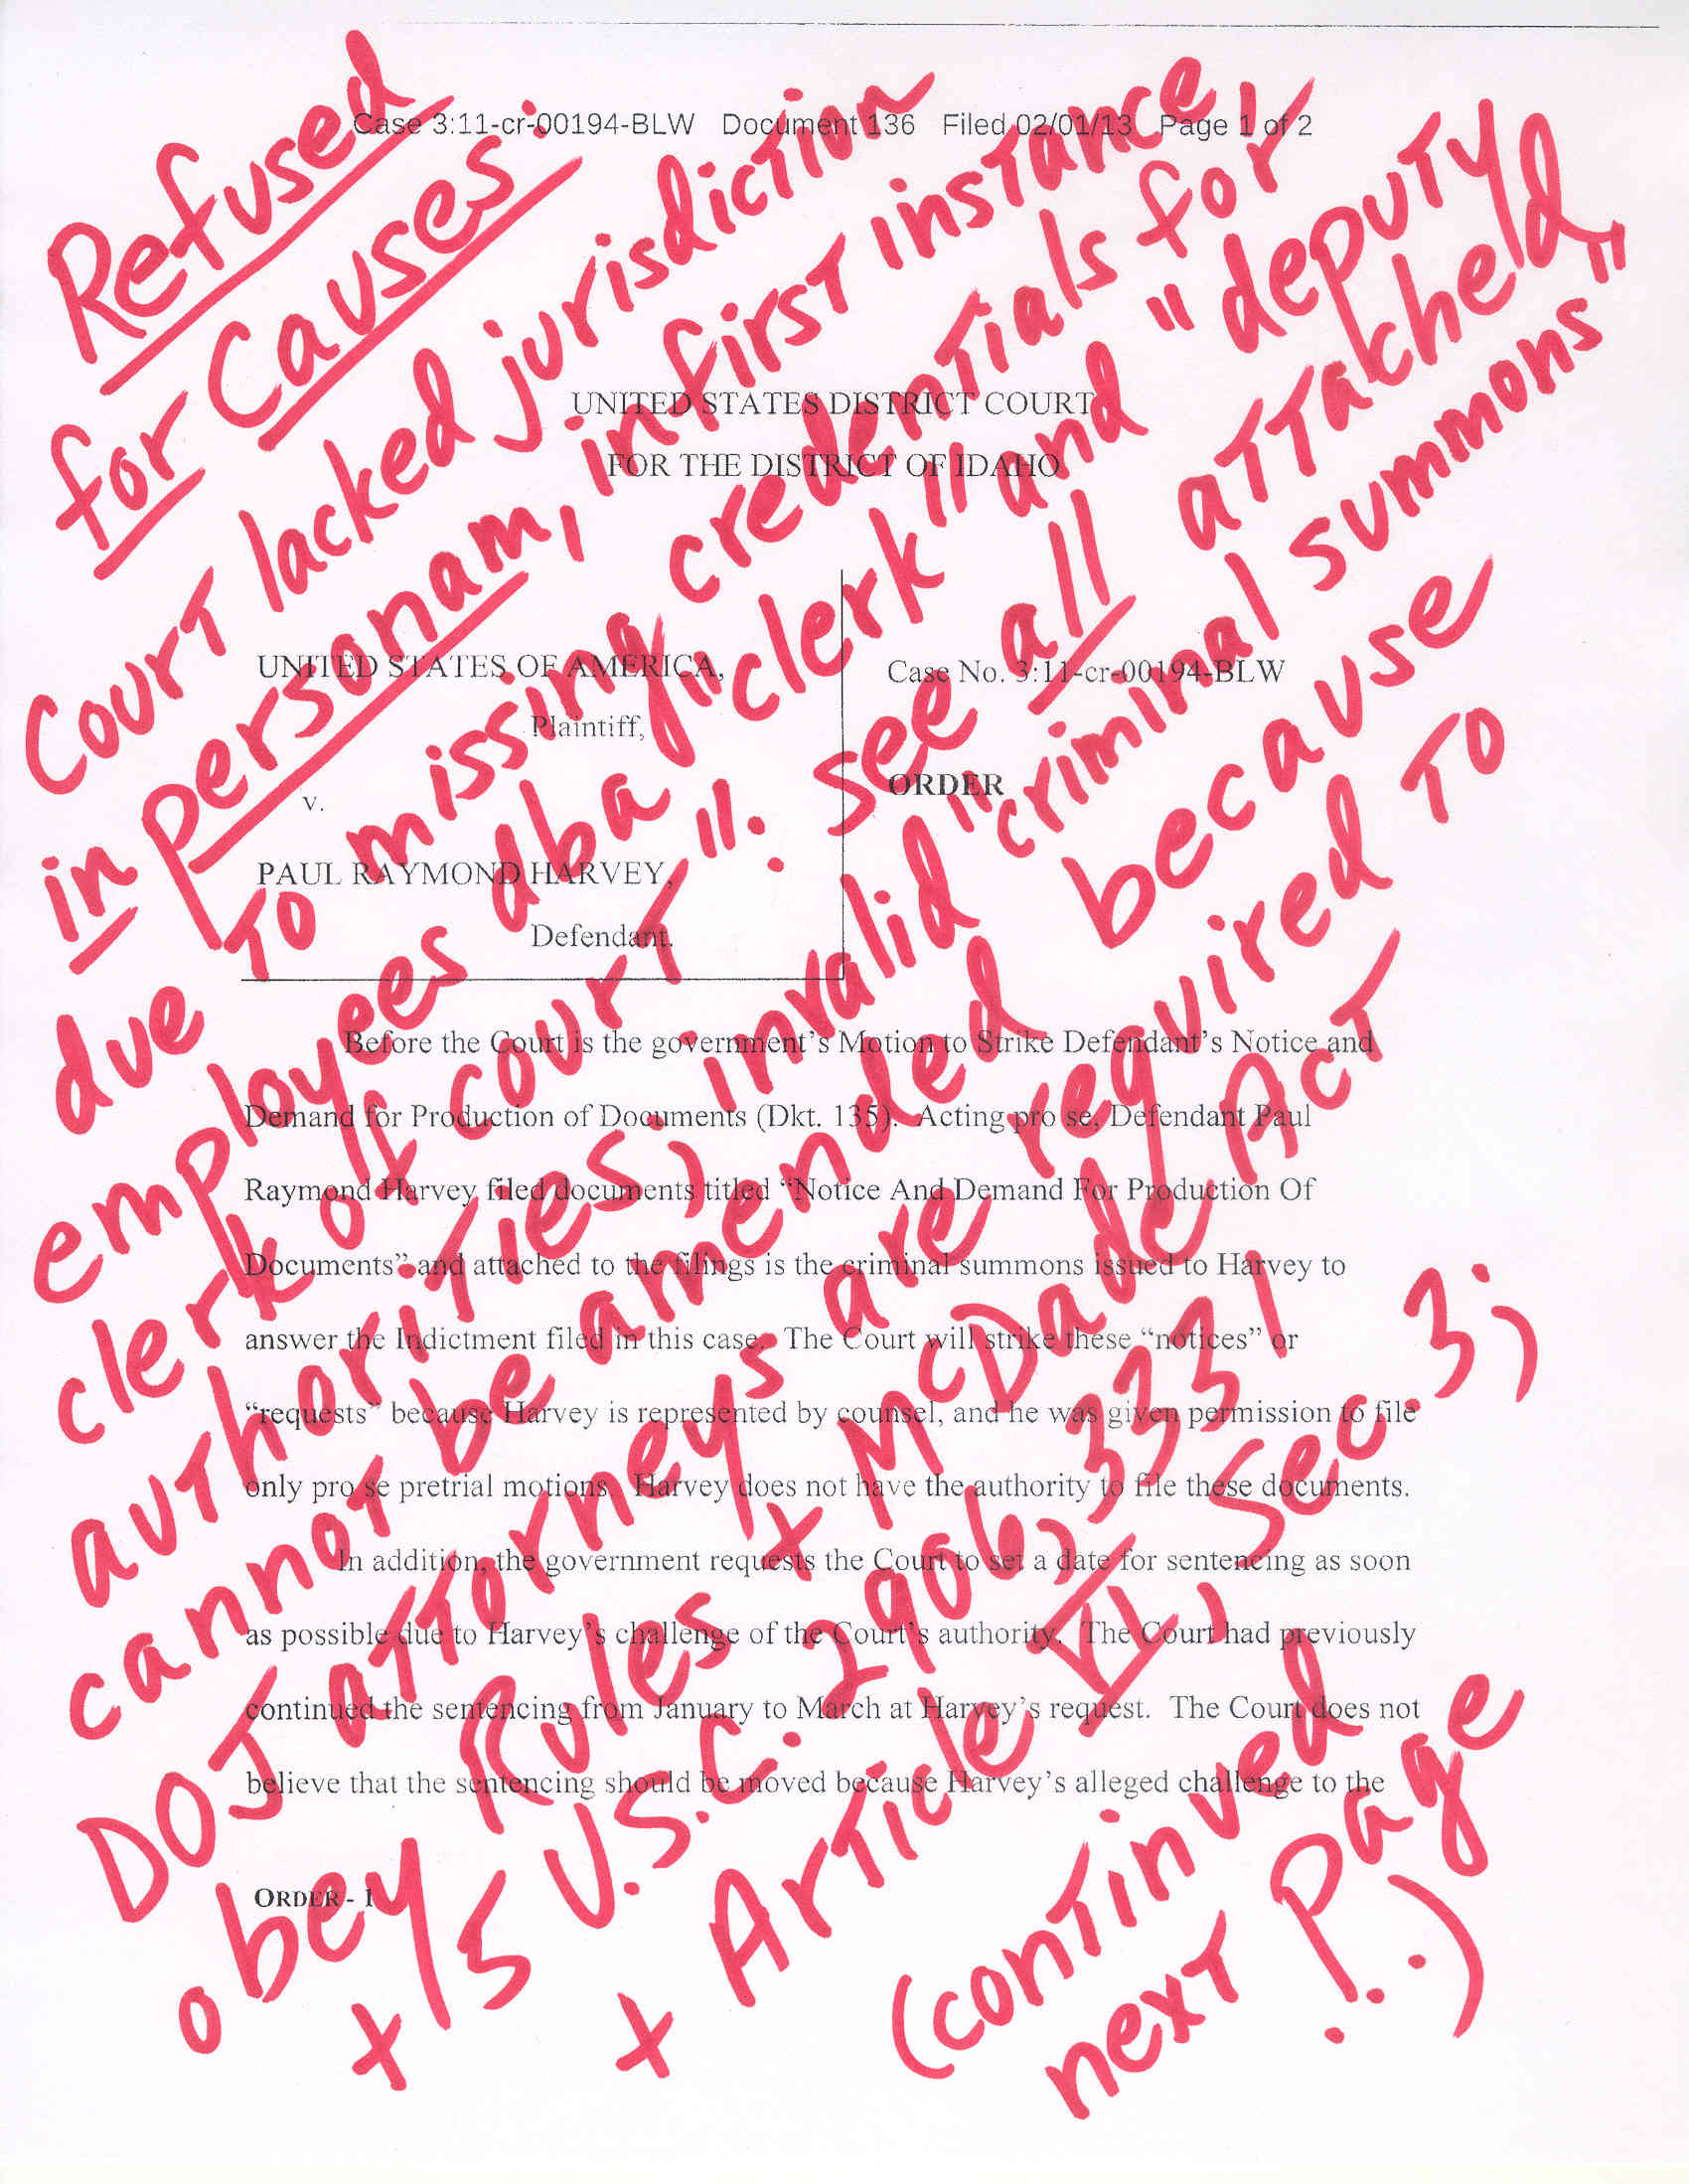 Case 3:11-cr-00194-BLW Document 136 Filed 02/01/13 Page 1 of 2
UNITED STATES DISTRICT COURT
FOR THE DISTRICT OF IDAHO
UNITED STATES OF AMERICA,
Plaintiff,
v.
PAUL RAYMOND HARVEY,
Defendant.
Case No. 3:11-cr-00194-BLW
ORDER
Before the Court is the government's Motion to Strike Defendant's Notice and
Demand for Production of Documents (Dkt. 135). Acting pro se, Defendant Paul
Raymond Harvey filed documents titled "Notice And Demand For Production Of
Documents" and attached to the filings is the criminal summons issued to Harvey to
answer the Indictment filed in this case. The Court will strike these "notices" or
"requests" because Harvey is represented by counsel, and he was given permission to file
only pro se pretrial motions. Harvey does not have the authority to file these documents.
In addition, the government requests the Court to set a date for sentencing as soon
as possible due to Harvey's challenge of the Court's authority. The Court had previously
continued the sentencing from January to March at Harvey's request. The Court does not
believe that the sentencing should be moved because Harvey's alleged challenge to the
ORDER - 1
Refused
for Causes:
Court lacked jurisdiction
in personam, in first instance
due to missing credentials for
employees dba "clerk" and "deputy
clerk of court": see all attached
authorities; invalid "criminal summons"
cannot be amended because
DOJ attorneys are required to
obey Rules + McDade Act
+ 5 U.S.C. 2906, 3331
+ Article VI, Sec. 3;
(continued
next page
...)